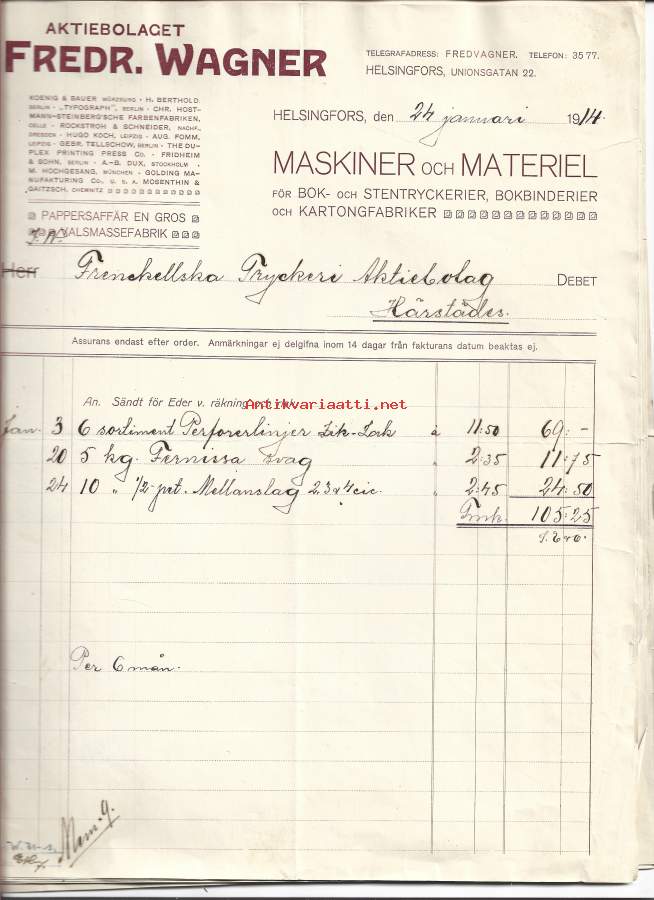 AKTIEBOLAGET
FREDR. WAGNER
TELEGRAFADRESS: FREDVAGNER. TELEFON: 35 77.
HELSINGFORS, UNIONSGATAN 22.
KOENIG & BAUER WÜRZBURG · H. BERTHOLD,
BERLIN · „TYPOGRAPH”, BERLIN · CHR. HOST-
MANN-STEINBERG'SCHE FARBENFABRIKEN,
CELLE · ROCKSTROH & SCHNEIDER, NACHF.,
DRESDEN · HUGO KOCH, LEIPZIG · AUG. FOMM,
LEIPZIG · GEBR. TELLSCHOW, BERLIN · THE DU-
PLEX PRINTING PRESS CO. · FRIDHEIM
& SOHN, BERLIN · A.-B. DUX, STOCKHOLM ·
M. HOCHGESANG, MÜNCHEN · GOLDING MA-
NUFAKTURING CO., U. S. A. MOSENTHIN &
GAITZSCH, CHEMNITZ
PAPPERSAFFÄR EN GROS
VALSMASSEFABRIK
HELSINGFORS, den 24 januari 1914.
MASKINER OCH MATERIEL
FÖR BOK- OCH STENTRYCKERIER, BOKBINDERIER
OCH KARTONGFABRIKER
Herr Frenckellska Tryckeri Aktiebolag DEBET
Härstädes.
Assurans endast efter order. Anmärkningar ej delgifna inom 14 dagar från fakturans datum beaktas ej.
An. Sändt för Eder v. räkning och risk
Antikvariaatti.net
Jan. 3 6 sortiment Perforerlinjer Zik-Zak à 11:50 69:-
20 5 kg. Fernissa svag " 2:35 11:75
24 10 " 1/2-pet. Mellanslag 2, 3 & 4 cic. " 2:45 24:50
Fmk. 105:25
S. E. & O.
Per 6 mån.